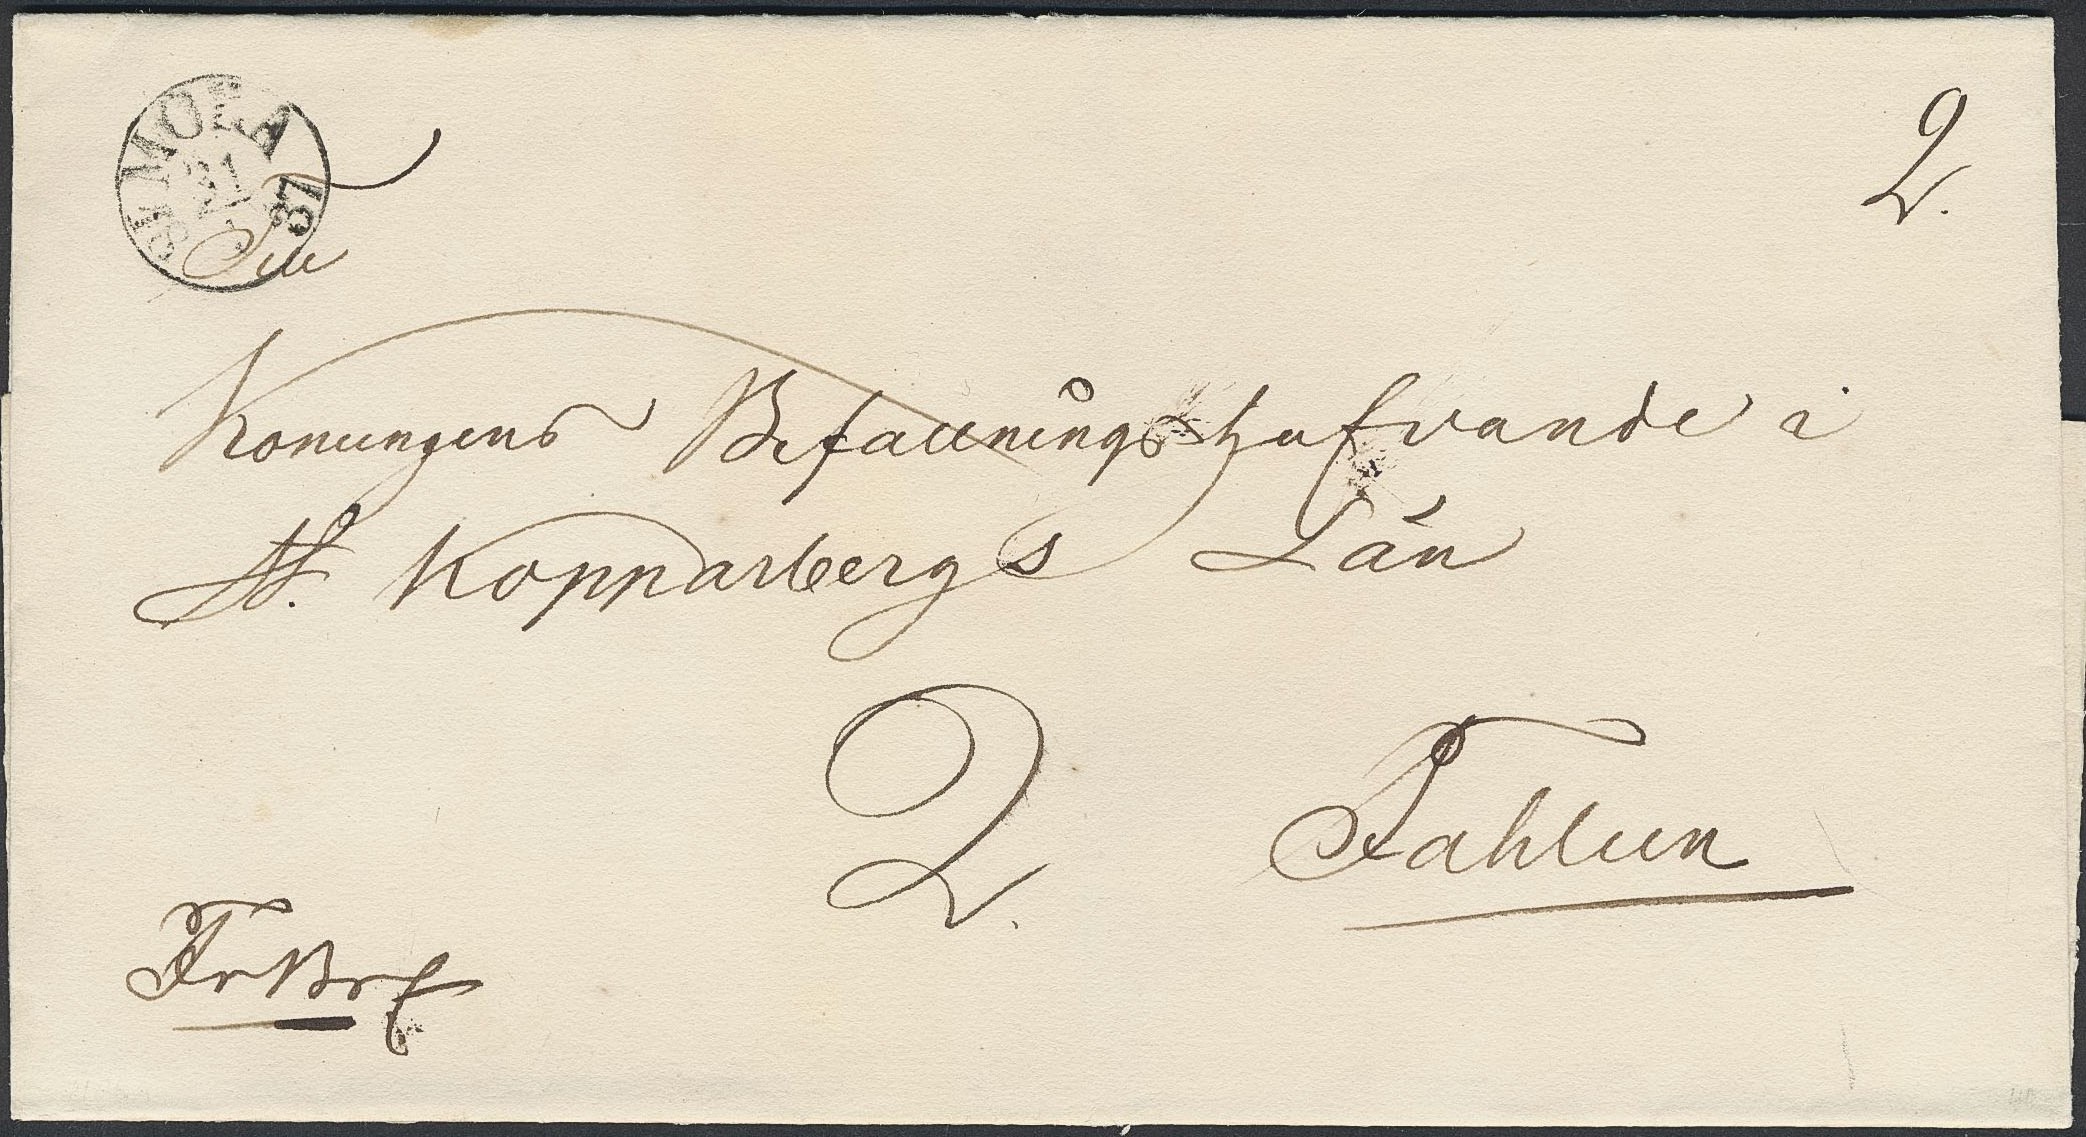 ST. MORA
31
37
2.
Till
Konungens Befallningshafvande i
St. Kopparbergs Län
2.
Fahlun
FrBref